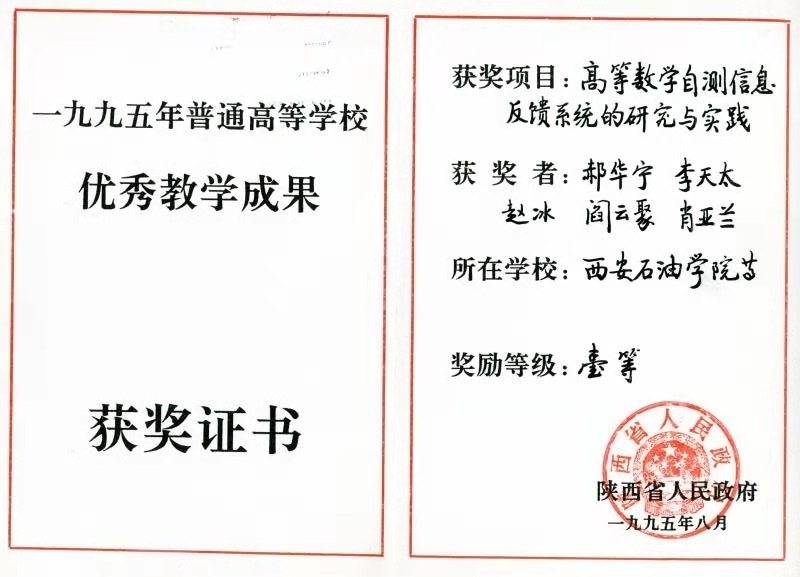 一九九五年普通高等学校
优秀教学成果
获奖证书
获奖项目：高等数学自测信息
反馈系统的研究与实践
获奖者：郝华宁 李天太
赵冰 阎云聚 肖亚兰
所在学校：西安石油学院等
奖励等级：壹等
陕西省人民政府
陕西省人民政府
一九九五年八月